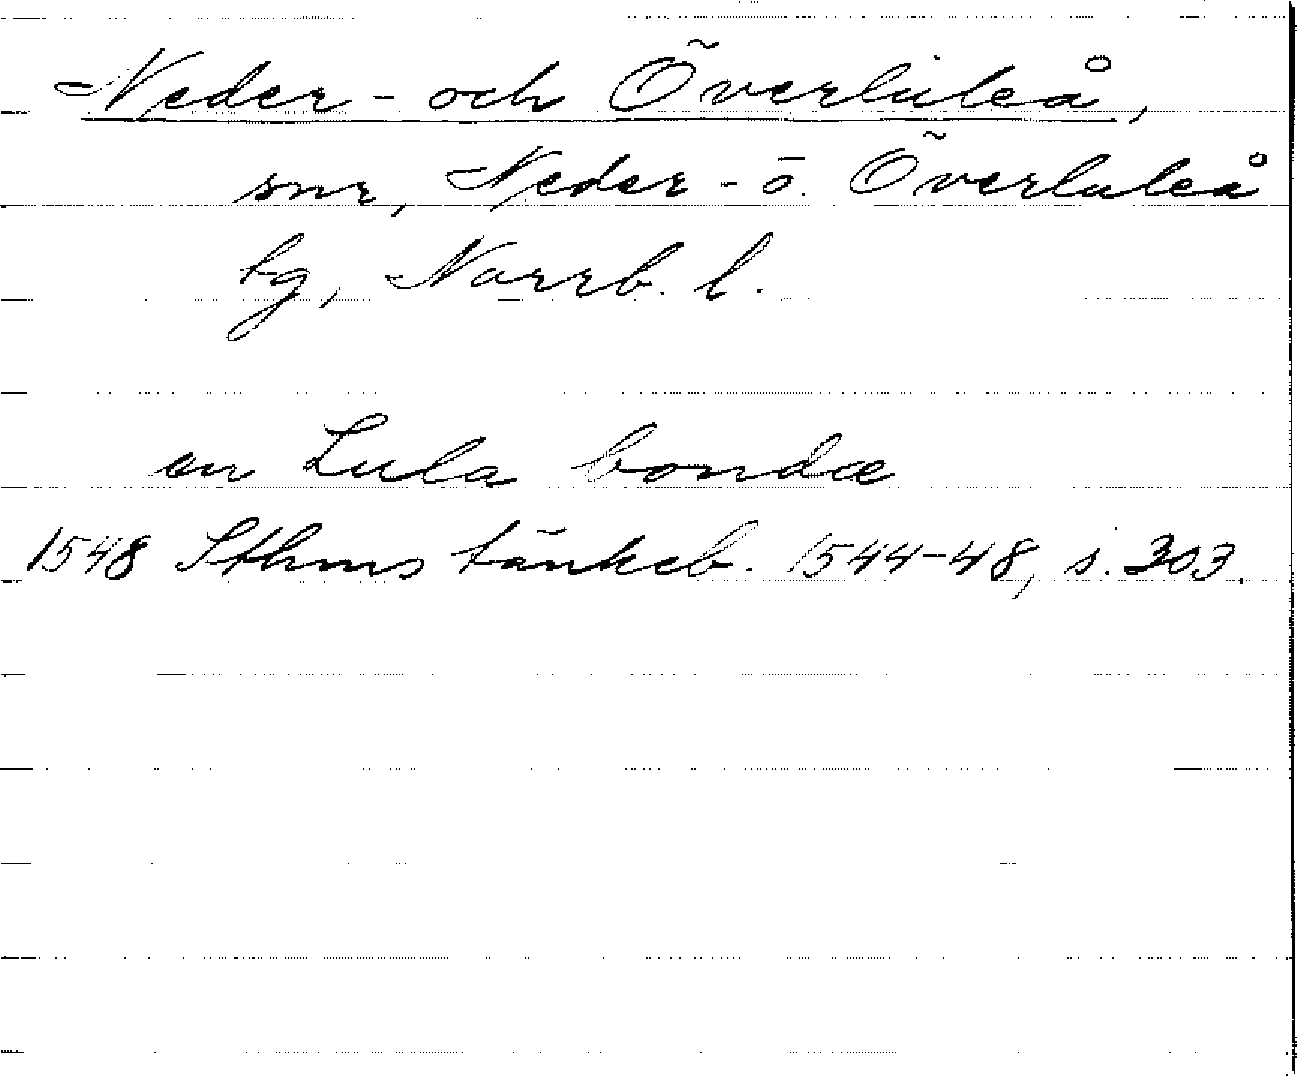 Neder- och Överluleå,
snr, Neder- o. Överluleå
tg, Norrb. l.
en Lula bondæ
1548 Sthms tänkeb. 1544-48, s. 303.